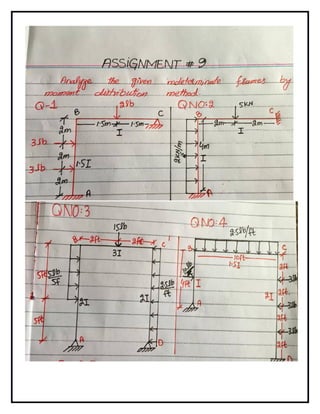 ASSIGNMENT # 9
Analyze the given indeterminate frames by
moment distribution method.
Q-1 2lb QNO:2 5KN
B 1.5m 1.5m C B 2m 2m C
I I
2m
3lb
2m
3lb 1.5I
2m
A
2KN/m 4m I
A
QNO:3 QNO:4
15lb 25lb/ft
B 2ft 2ft C B C
3I 10ft
1.5I
5ft 5lb/5f
2I 2I 25lb/ft
5ft
A D
4ft I
A
2ft
2ft
2I
2ft
2ft
D